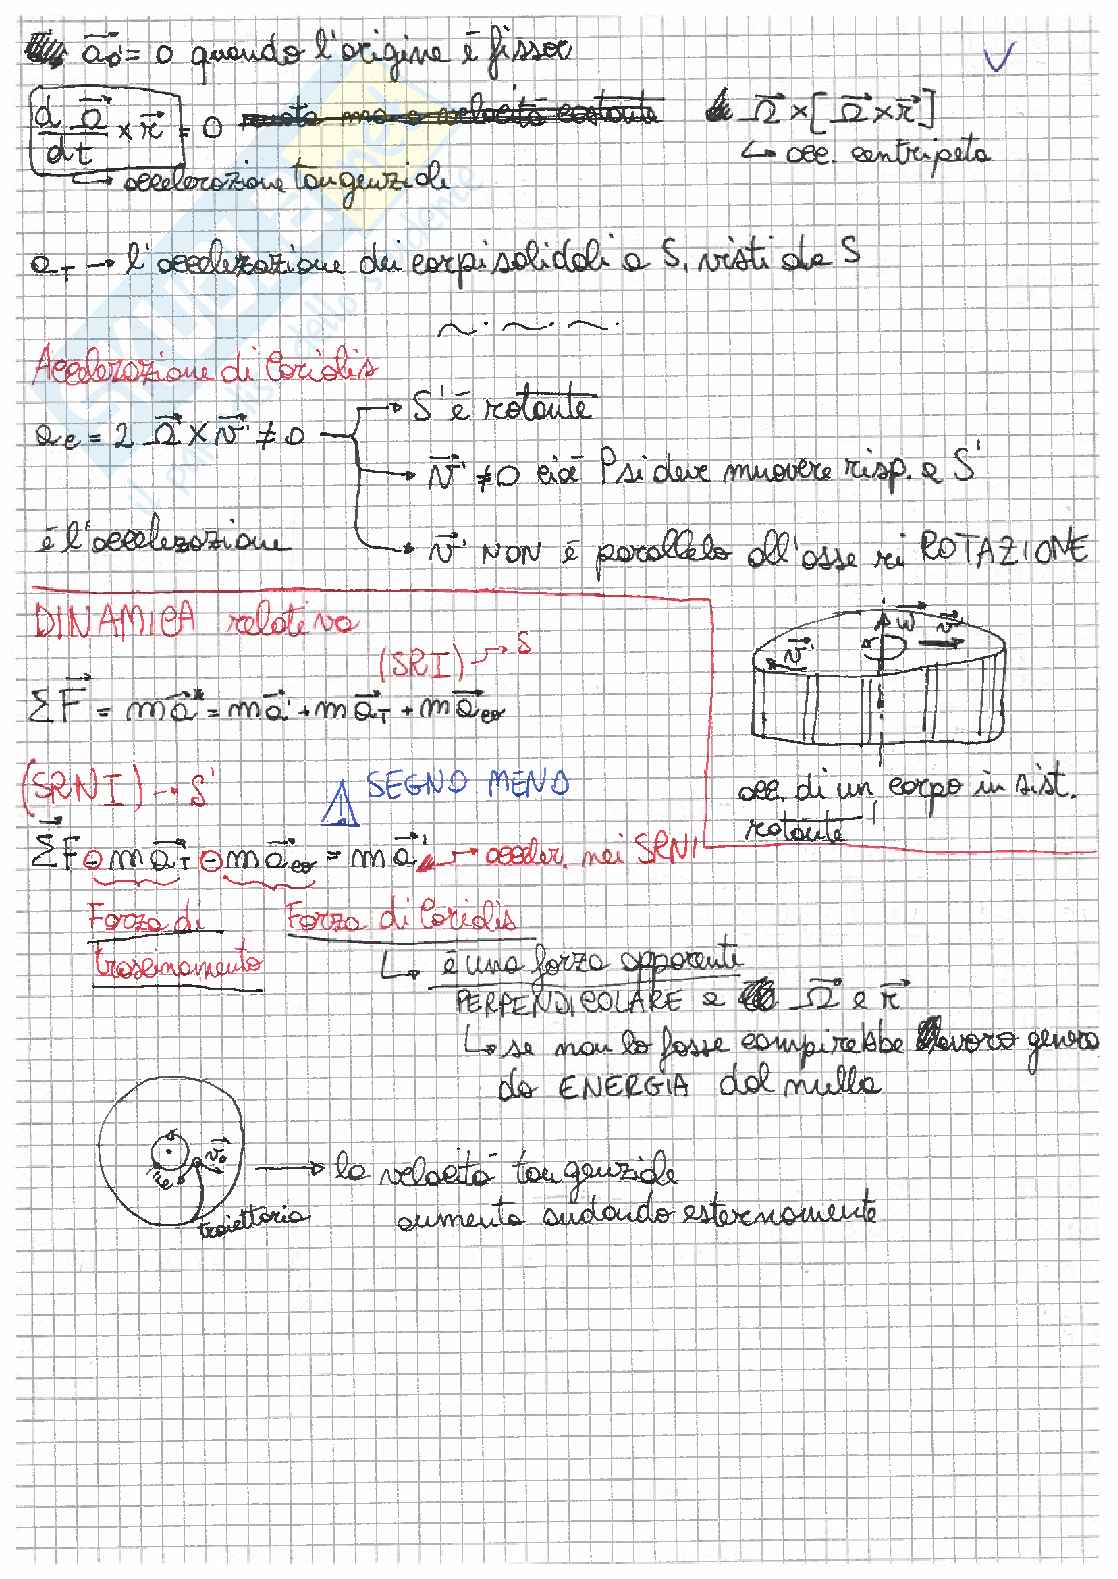 a₀' = 0 quando l'origine è fissa
V
dΩ/dt × r = 0 ruota ma a velocità costante
Ω × [Ω × r]
↳ acc. centripeta
↳ accelerazione tangenziale
a_T → l'accelerazione dei corpi solidali a S, visti da S
~·~·~·
Accelerazione di Coriolis
a_c = 2 Ω × v' ≠ 0
→ S' è rotante
→ v' ≠ 0 cioè P si deve muovere risp. a S'
è l'accelerazione
→ v' NON è parallelo all'asse ri ROTAZIONE
DINAMICA relativa
(SRI) → S
ω v'
v'
ΣF = ma* = ma' + ma_T + ma_co
(SRNI) → S'
SEGNO MENO
acc. di un corpo in sist.
rotante
ΣF - ma_T - ma_co = ma' → acceler. nei SRNI
Forza di
trascinamento
Forza di Coriolis
↳ è una forza apparente
PERPENDICOLARE a Ω e r
↳ se non lo fosse compirebbe lavoro genera
do ENERGIA dal nulla
v₀
traiettoria
→ la velocità tangenziale
aumenta andando esternamente